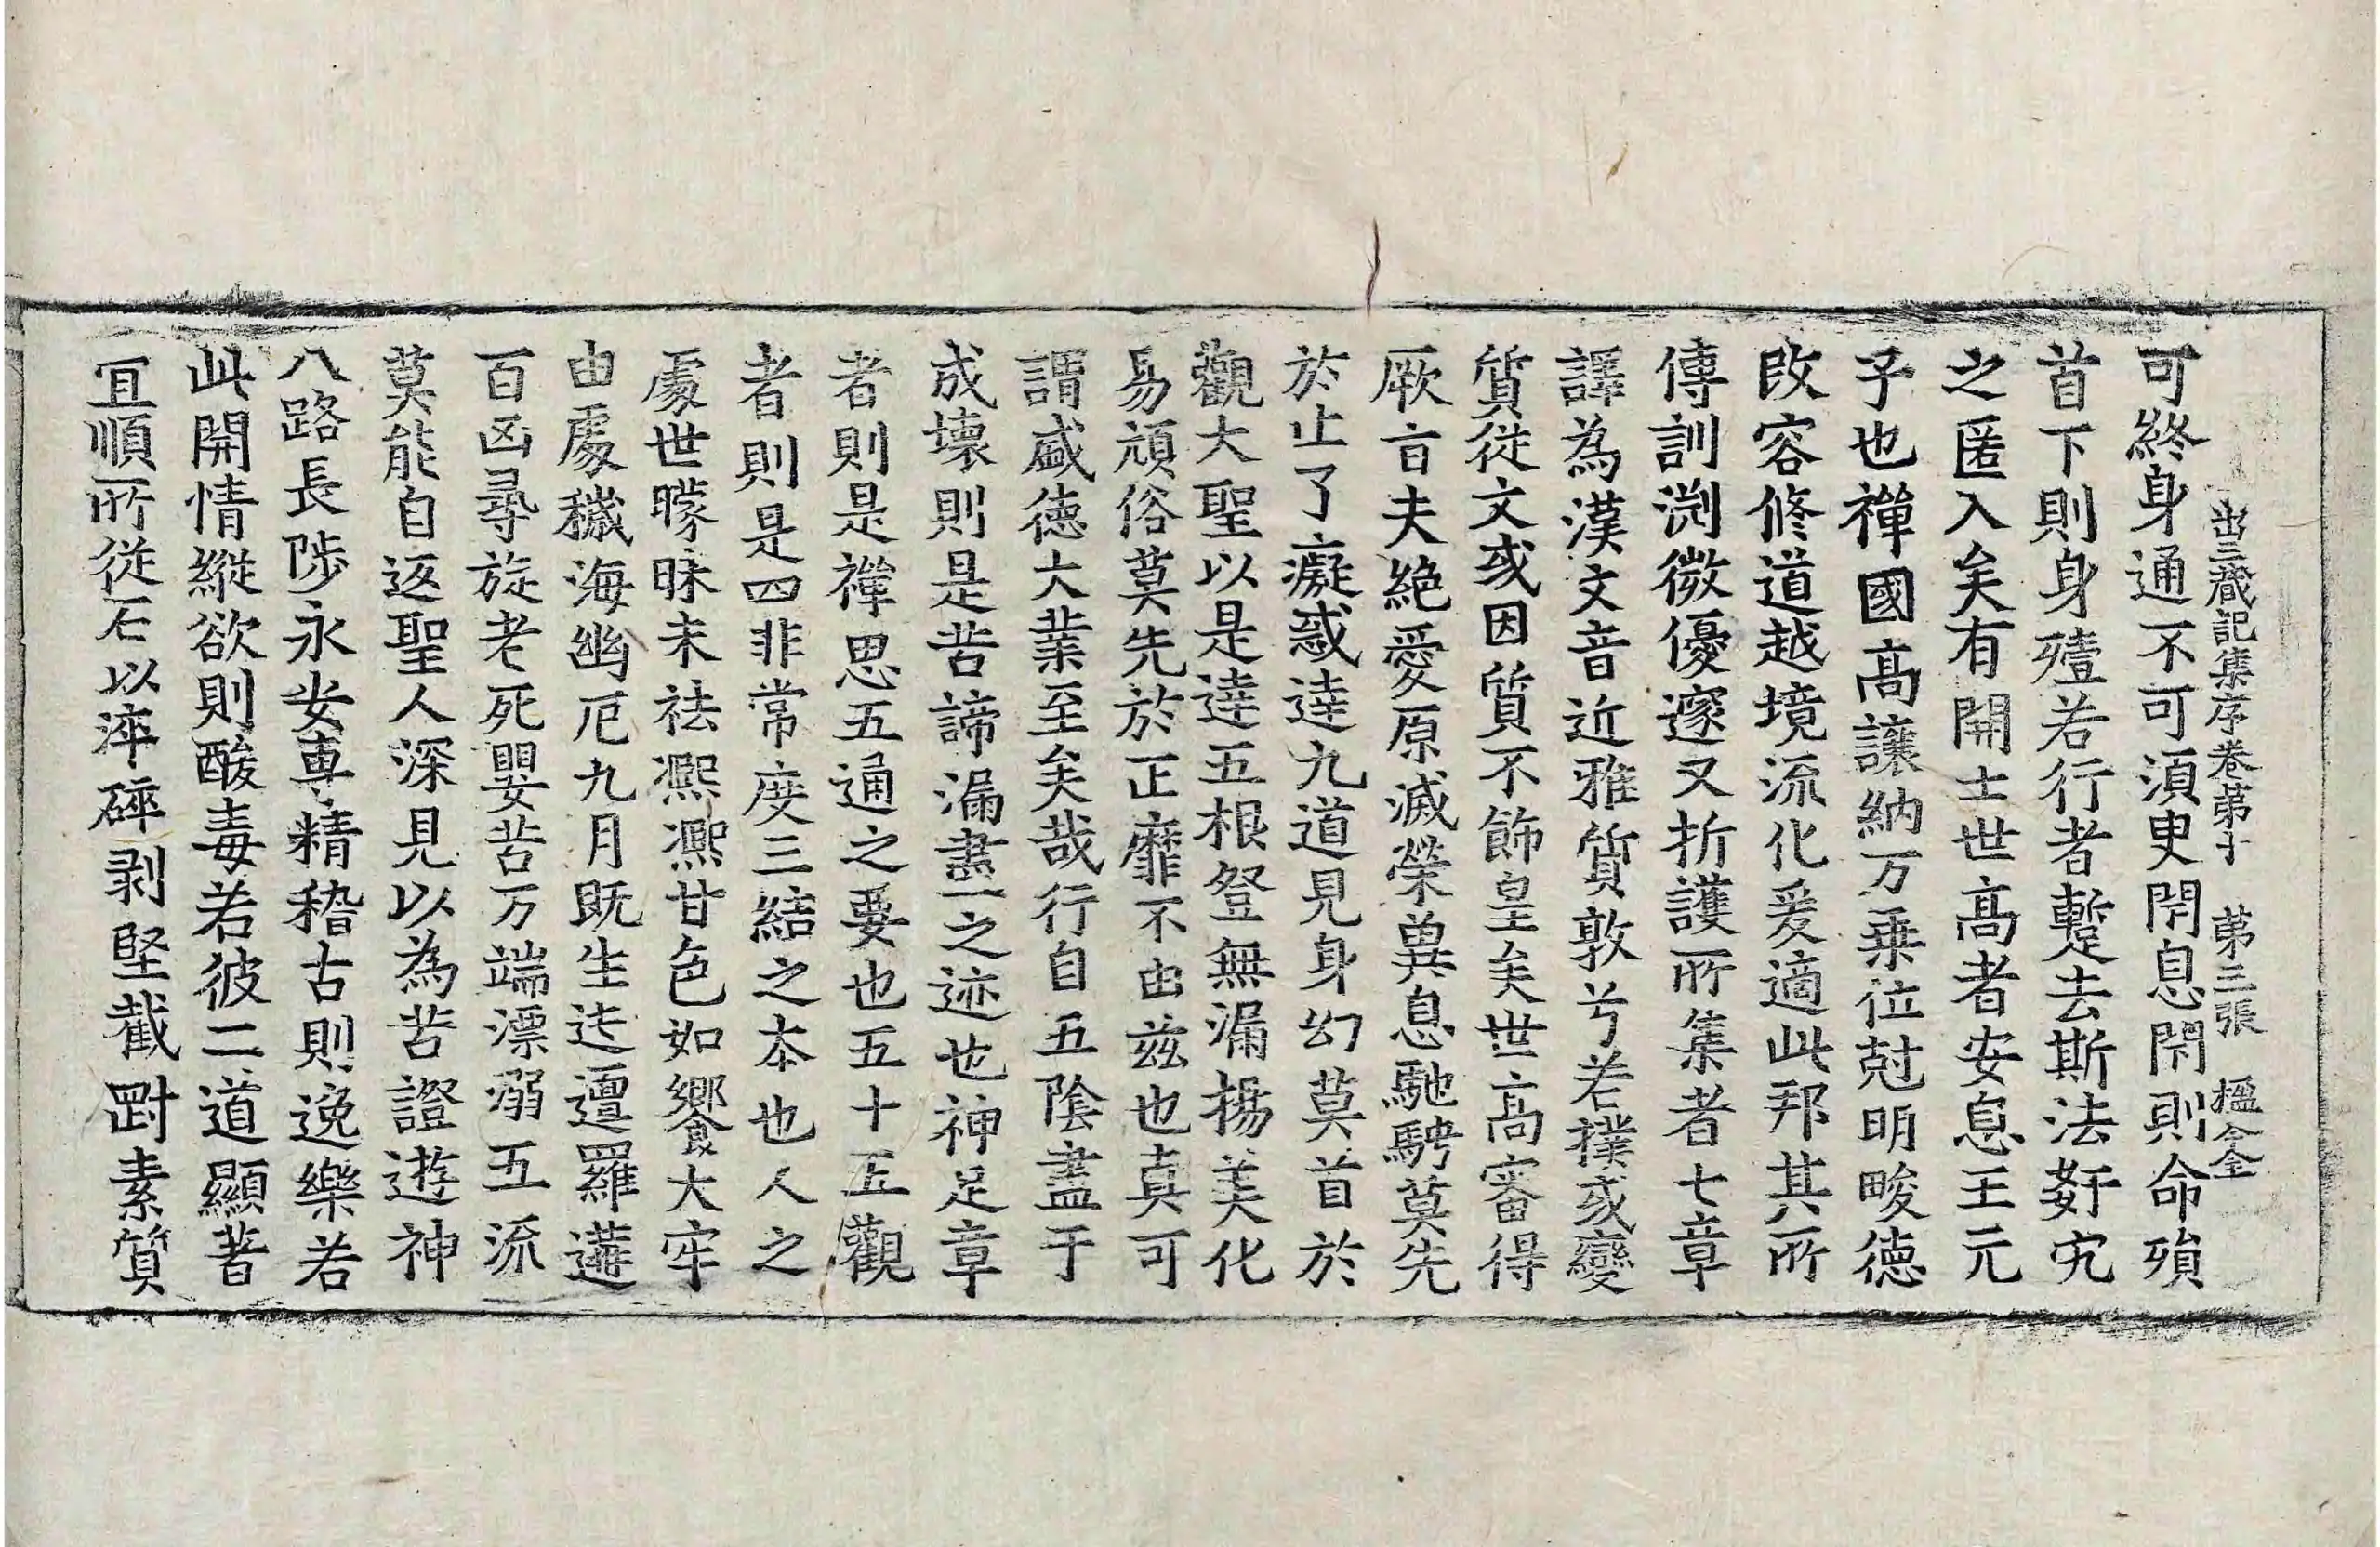 可終身通不可須臾閇息閇則命殞
出三藏記集序卷第十　第三張　楹仝
首下則身殪若行者蹔去斯法姧宄
之匿入矣有開士世高者安息王元
子也禪國高讓納万乗位尅明畯德
改容修道越境流化爰適此邦其所
傳訓渕微優邃又折護所集者七章
譯為漢文音近雅質敦兮若樸或變
質從文或因質不飾皇矣世高審得
厥旨夫絶愛原滅榮兾息馳騁莫先
於止了癡惑達九道見身幻莫首於
觀大聖以是達五根登無漏揚美化
易頑俗莫先於正靡不由兹也真可
謂盛德大業至矣哉行自五陰盡于
成壊則是苦諦漏盡之迹也神足章
者則是禪思五通之要也五十五觀
者則是四非常度三結之本也人之
處世矇昧未祛凞凞甘色如饗大牢
由處穢海幽厄九月既生迍邅羅遘
百凶尋旋老死嬰苦万端漂溺五流
莫能自返聖人深見以為苦證遊神
八路長陟永安專精稽古則逸樂若
此開情縱欲則酸毒若彼二道顯著
宜順所從石以淬砰剥堅截罰素質